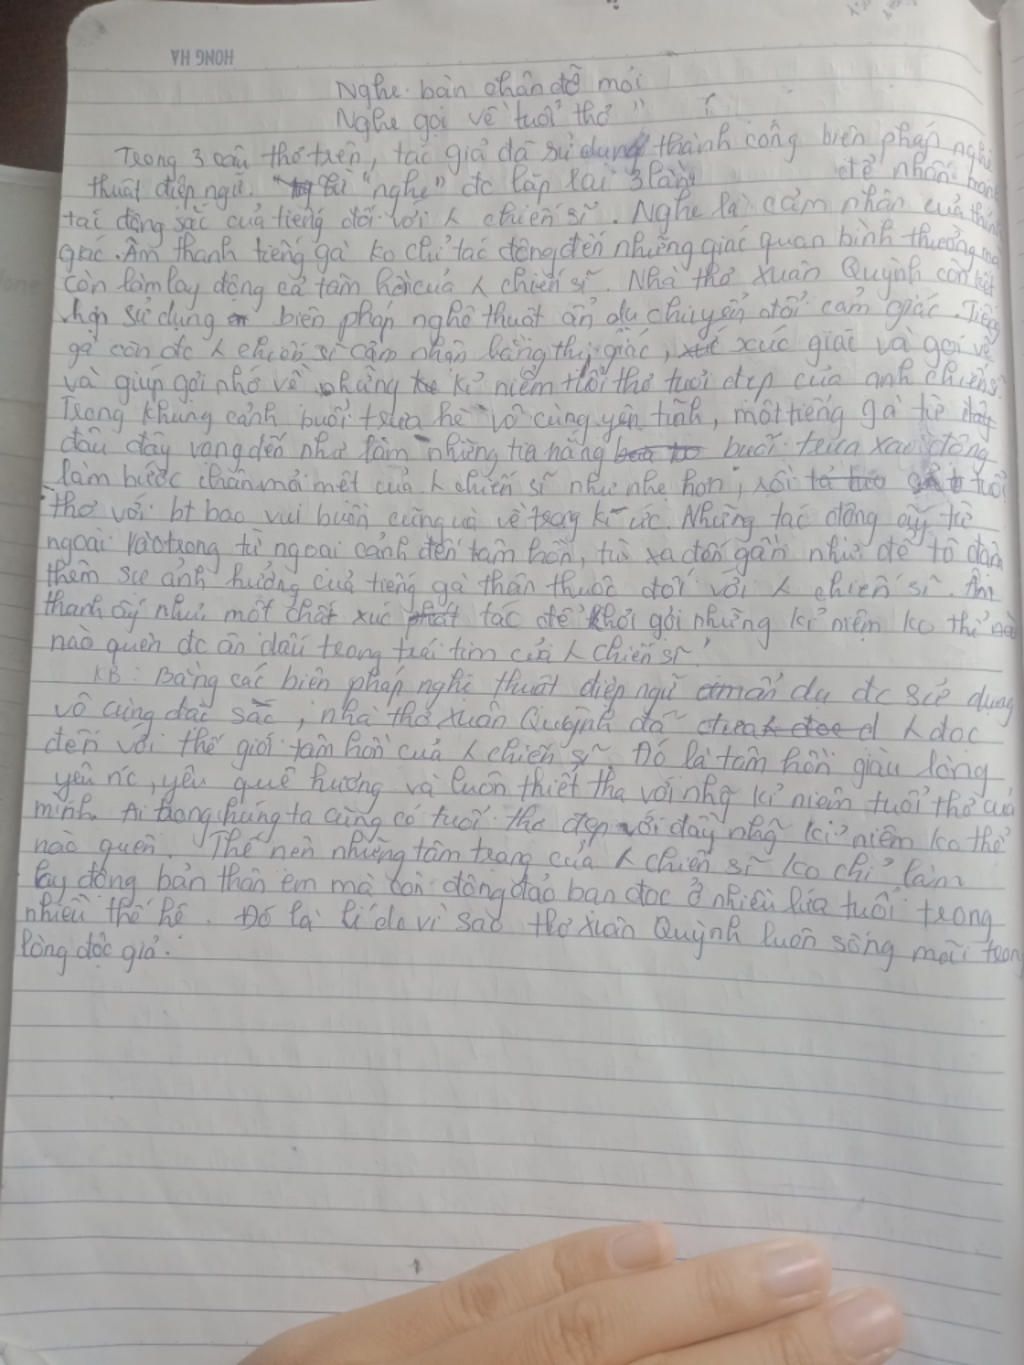 HONG HA
Nghe bàn chân đỡ mỏi
Nghe gọi về tuổi thơ"
Trong 3 câu thơ trên, tác giả đã sử dụng thành công biện pháp nghệ
thuật điệp ngữ. từ "nghe" đc lặp lại 3 lần để nhấn mạnh
tác động sâu sắc của tiếng đối với chiến sĩ. Nghe là cảm nhận của thính
giác. Âm thanh tiếng gà ko chỉ tác động đến những giác quan bình thường mà
còn làm lay động cả tâm hồn của chiến sĩ. Nhà thơ Xuân Quỳnh còn kết
hợp sử dụng biện pháp nghệ thuật ẩn dụ chuyển đổi cảm giác. Tiếng
gà còn đc chiến sĩ cảm nhận bằng thị giác, xúc giác và gọi về
và giúp gợi nhớ về những kỉ niệm tuổi thơ tươi đẹp của anh chiến sĩ.
Trong khung cảnh buổi trưa hè vô cùng yên tĩnh, một tiếng gà từ đây
đâu đây vang đến như làm những tia nắng buổi trưa xao động
làm bước chân mỏi mệt của chiến sĩ như nhẹ hơn, rồi tuổi
thơ với bt bao vui buồn cũng ùa về trong kí ức. Những tác động ấy từ
ngoài vào trong từ ngoại cảnh đến tâm hồn, từ xa đến gần như để tô đậm
thêm sự ảnh hưởng của tiếng gà thân thuộc đối với chiến sĩ. Âm
thanh ấy như một chất xúc tác để khơi gợi những kỉ niệm ko thể nào
nào quên đc ẩn dấu trong trái tim của chiến sĩ.
KB: Bằng các biện pháp nghệ thuật điệp ngữ ẩn dụ đc sử dụng
vô cùng đặc sắc, nhà thơ Xuân Quỳnh đã đọc
đến với thế giới tâm hồn của chiến sĩ. Đó là tâm hồn giàu lòng
yêu nc, yêu quê hương và luôn thiết tha với nhg kỉ niệm tuổi thơ của
mình. Ai trong chúng ta cũng có tuổi thơ đẹp với đầy nhg kỉ niệm ko thể
nào quên. Thế nên những tâm trạng của chiến sĩ ko chỉ làm
lay động bản thân em mà còn đông đảo bạn đọc ở nhiều lứa tuổi trong
nhiều thế hệ. Đó là lí do vì sao thơ Xuân Quỳnh luôn sống mãi trong
lòng độc giả.